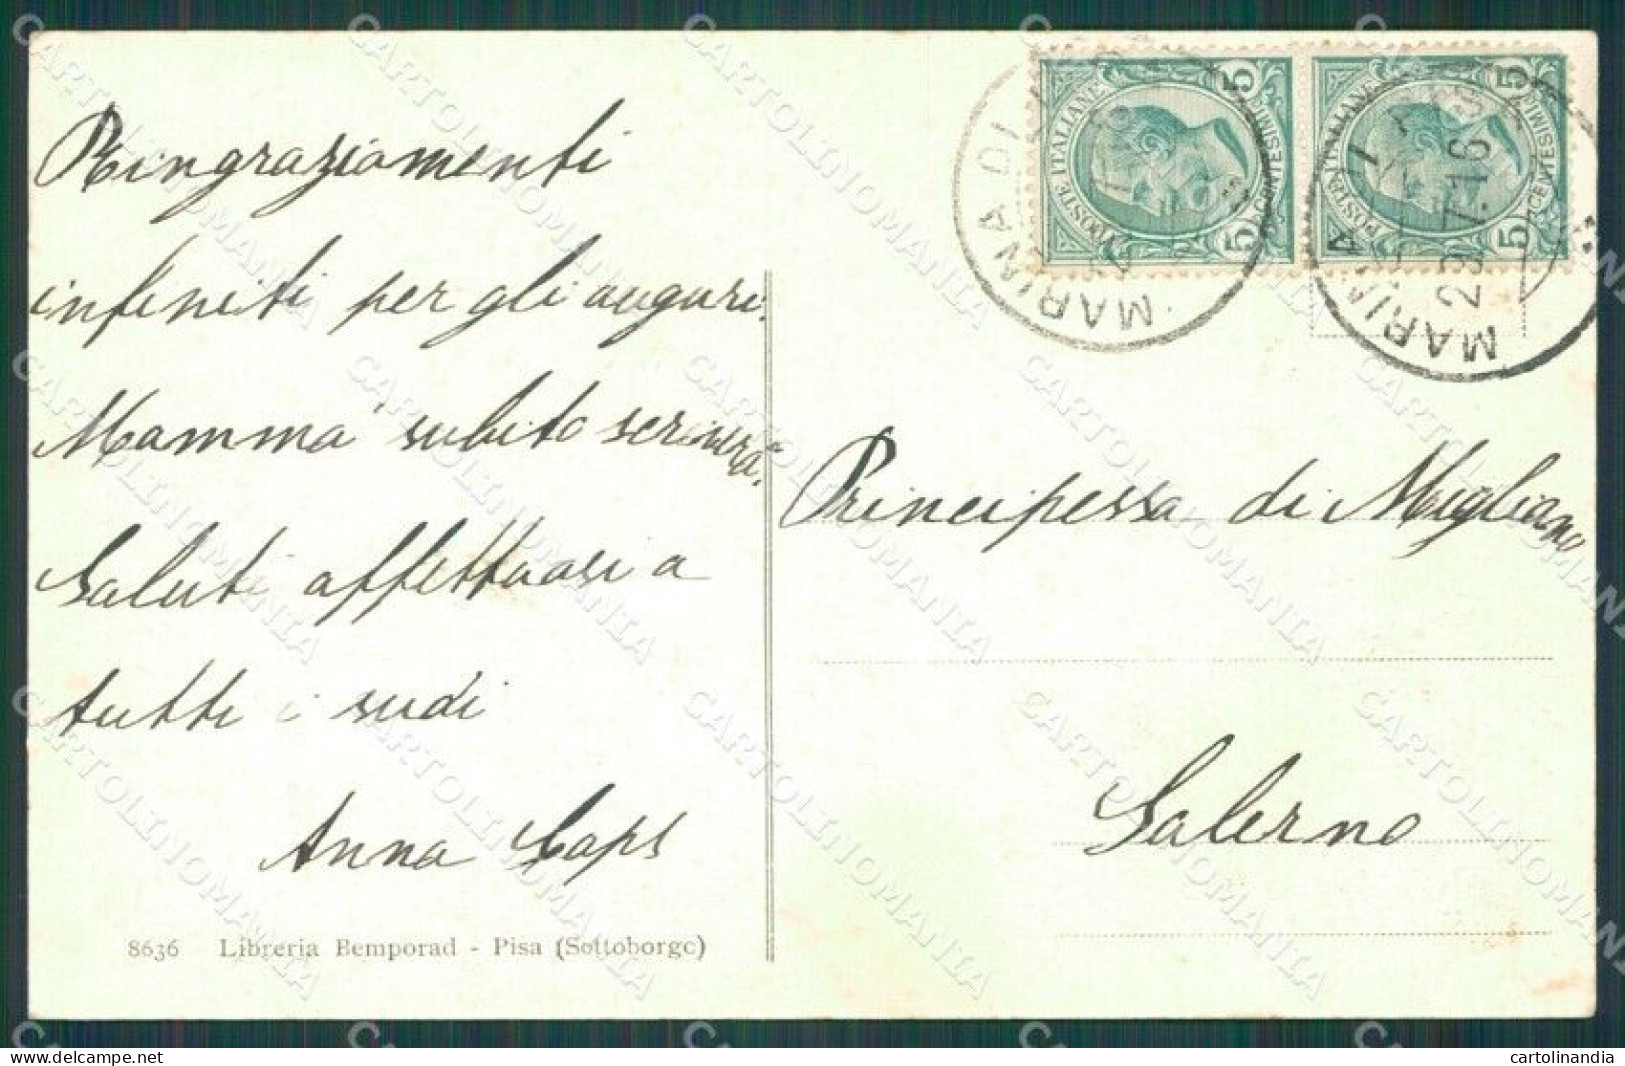 Ringraziamenti
infiniti per gli auguri.
Mamma subito scriverà.
Saluti affettuosi a
tutti i sudi
Anna
8636 Libreria Bemporad - Pisa (Sottoborgo)
POSTE ITALIANE
5 CENTESIMI 5
POSTE ITALIANE
5 CENTESIMI 5
MARINA DI
MARINA DI
29.7.16
Principessa di Migliano
Salerno
CARTOLINOMANIA
cartolinandia